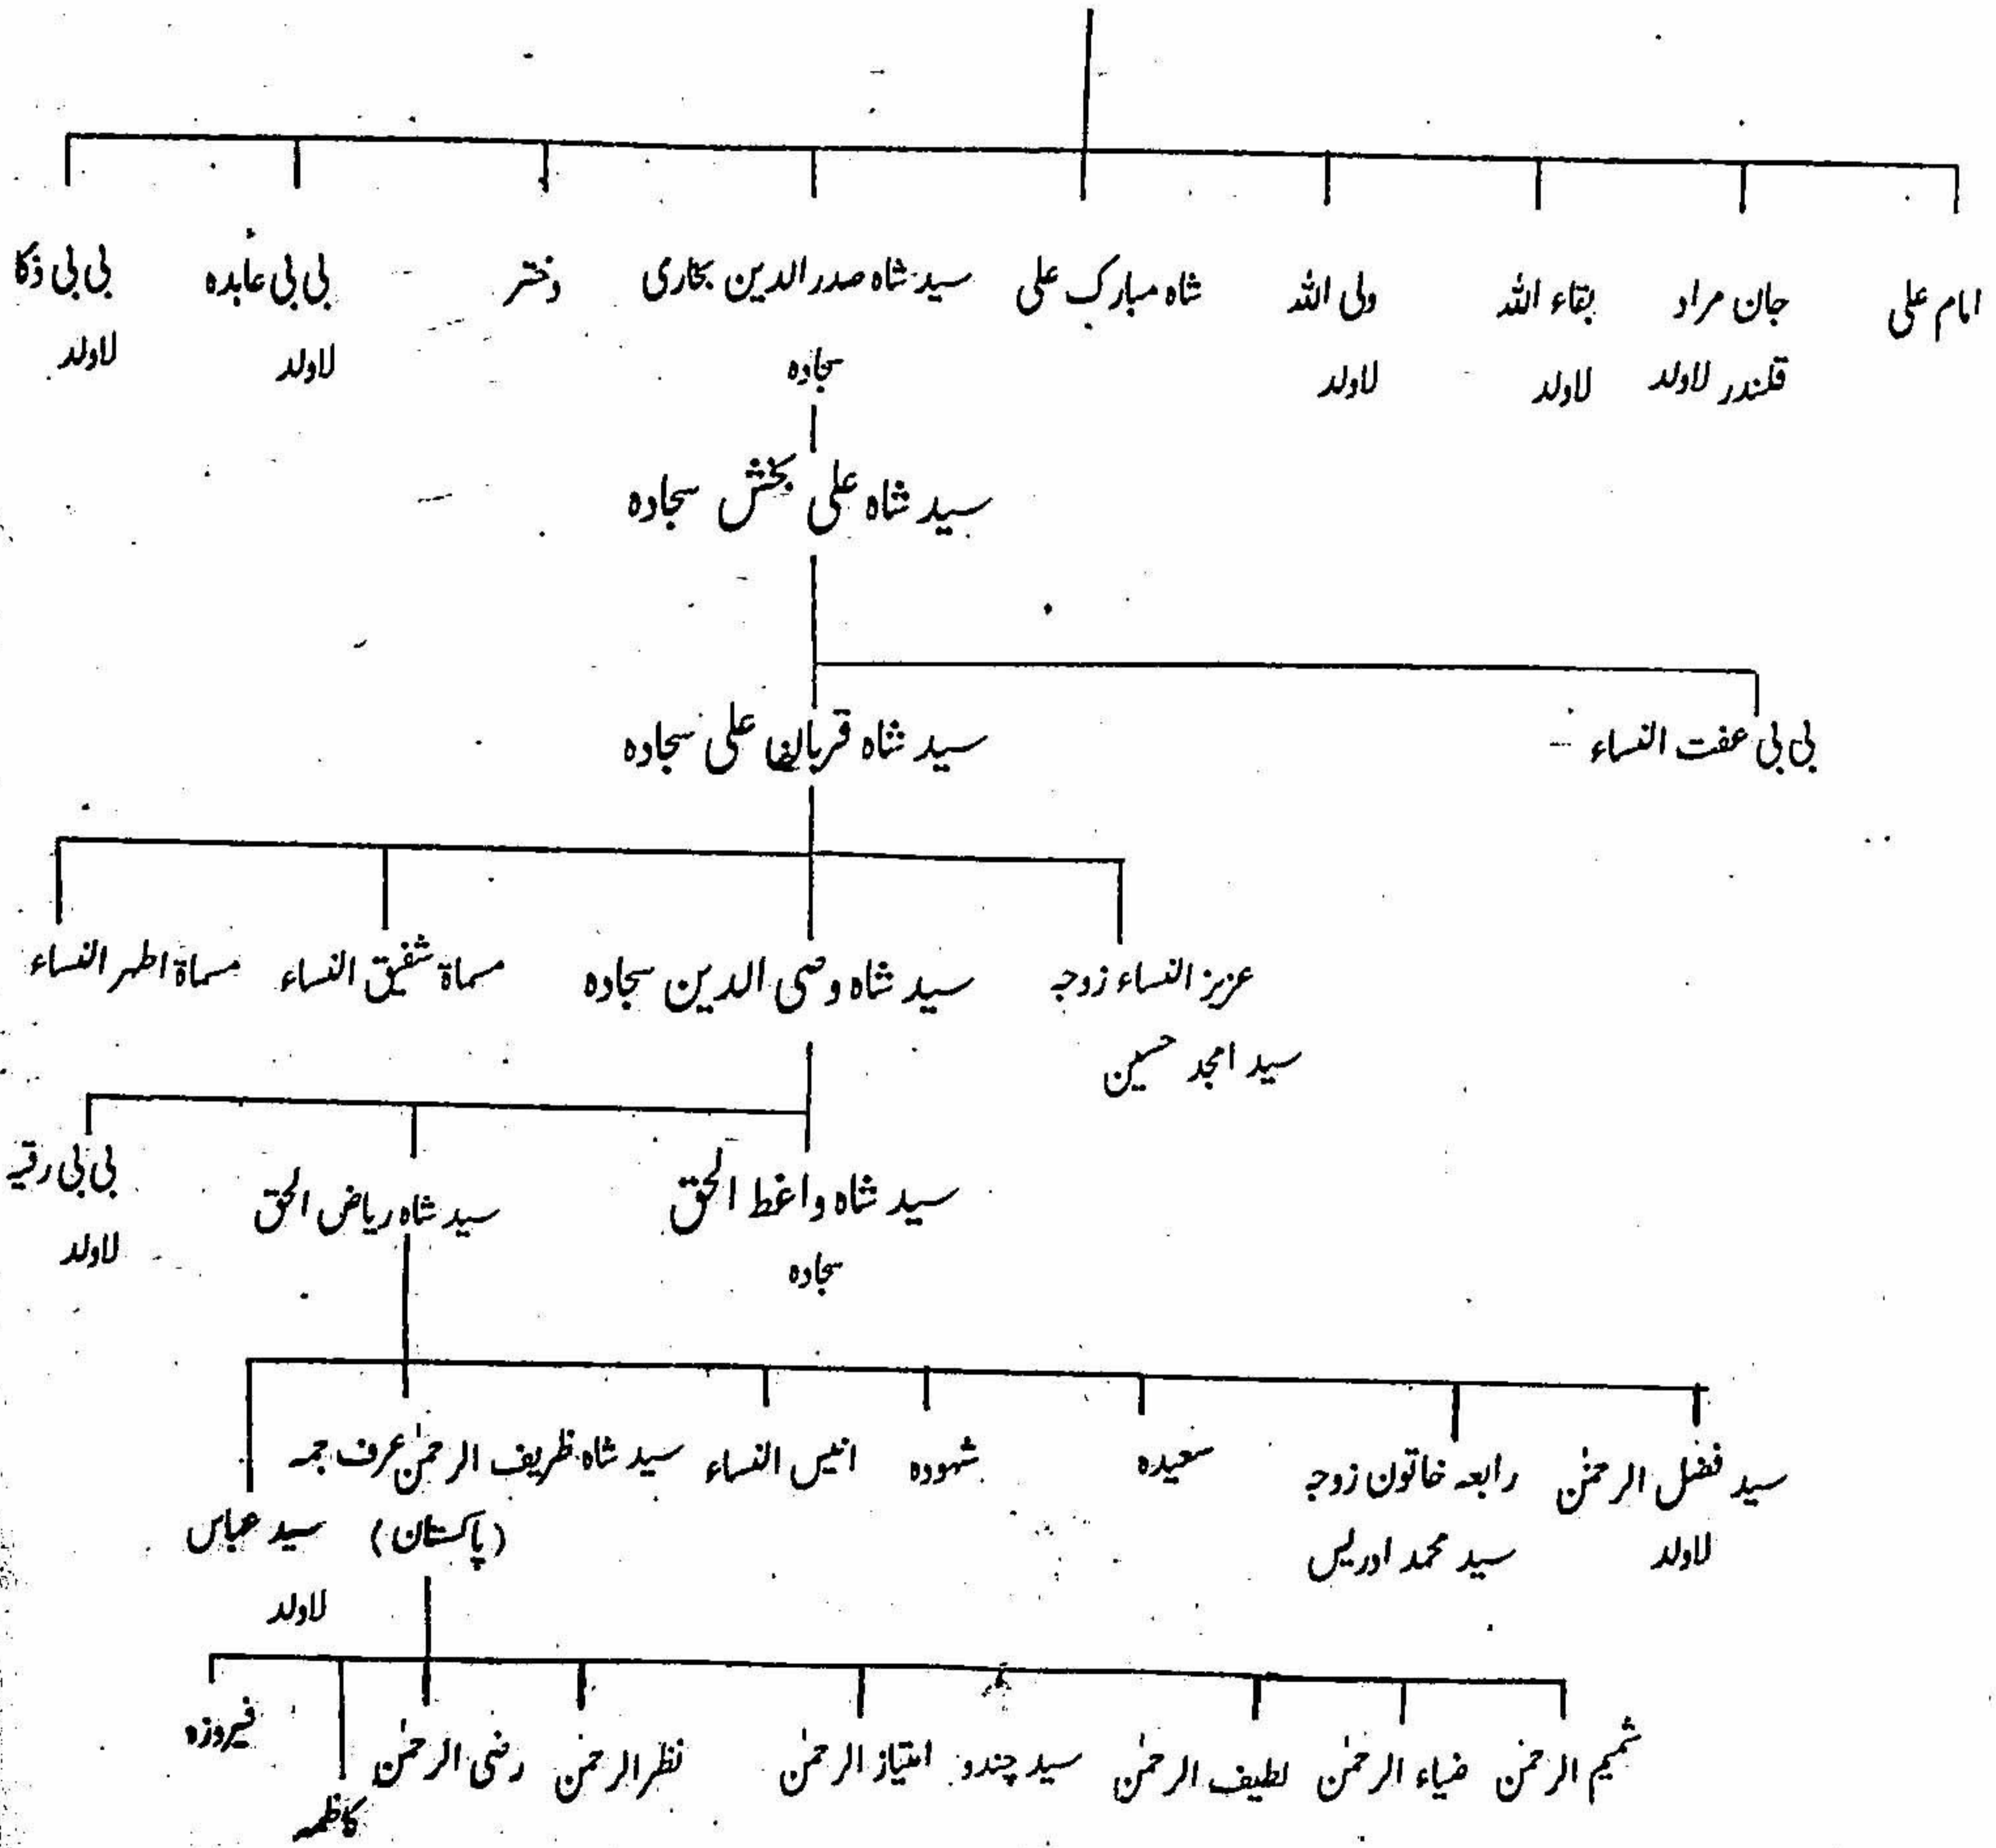 امام علی
جان مراد
قلندر لاولد
بقاء اللہ
لاولد
ولی اللہ
لاولد
شاہ مبارک علی
سید شاہ صدر الدین بخاری
سجادہ
دختر
بی بی عابدہ
لاولد
بی بی ذکا
لاولد
سید شاہ علی بخش سجادہ
بی بی عفت النساء
سید شاہ قربان علی سجادہ
عزیز النساء زوجہ
سید امجد حسین
سید شاہ وصی الدین سجادہ
مسماۃ شفیق النساء
مسماۃ اطہر النساء
سید شاہ واغط الحق
سجادہ
سید شاہ ریاض الحق
بی بی رقیہ
لاولد
سید فضل الرحمٰن
لاولد
رابعہ خاتون زوجہ
سید محمد ادریس
سعیدہ
شہودہ
انیس النساء
سید شاہ ظریف الرحمٰن عرف جمہ
(پاکستان)
سید عباس
لاولد
شمیم الرحمٰن
ضیاء الرحمٰن
لطیف الرحمٰن
سید چندو
امتیاز الرحمٰن
نظر الرحمٰن
رضی الرحمٰن
کاظمہ
فیروزہ